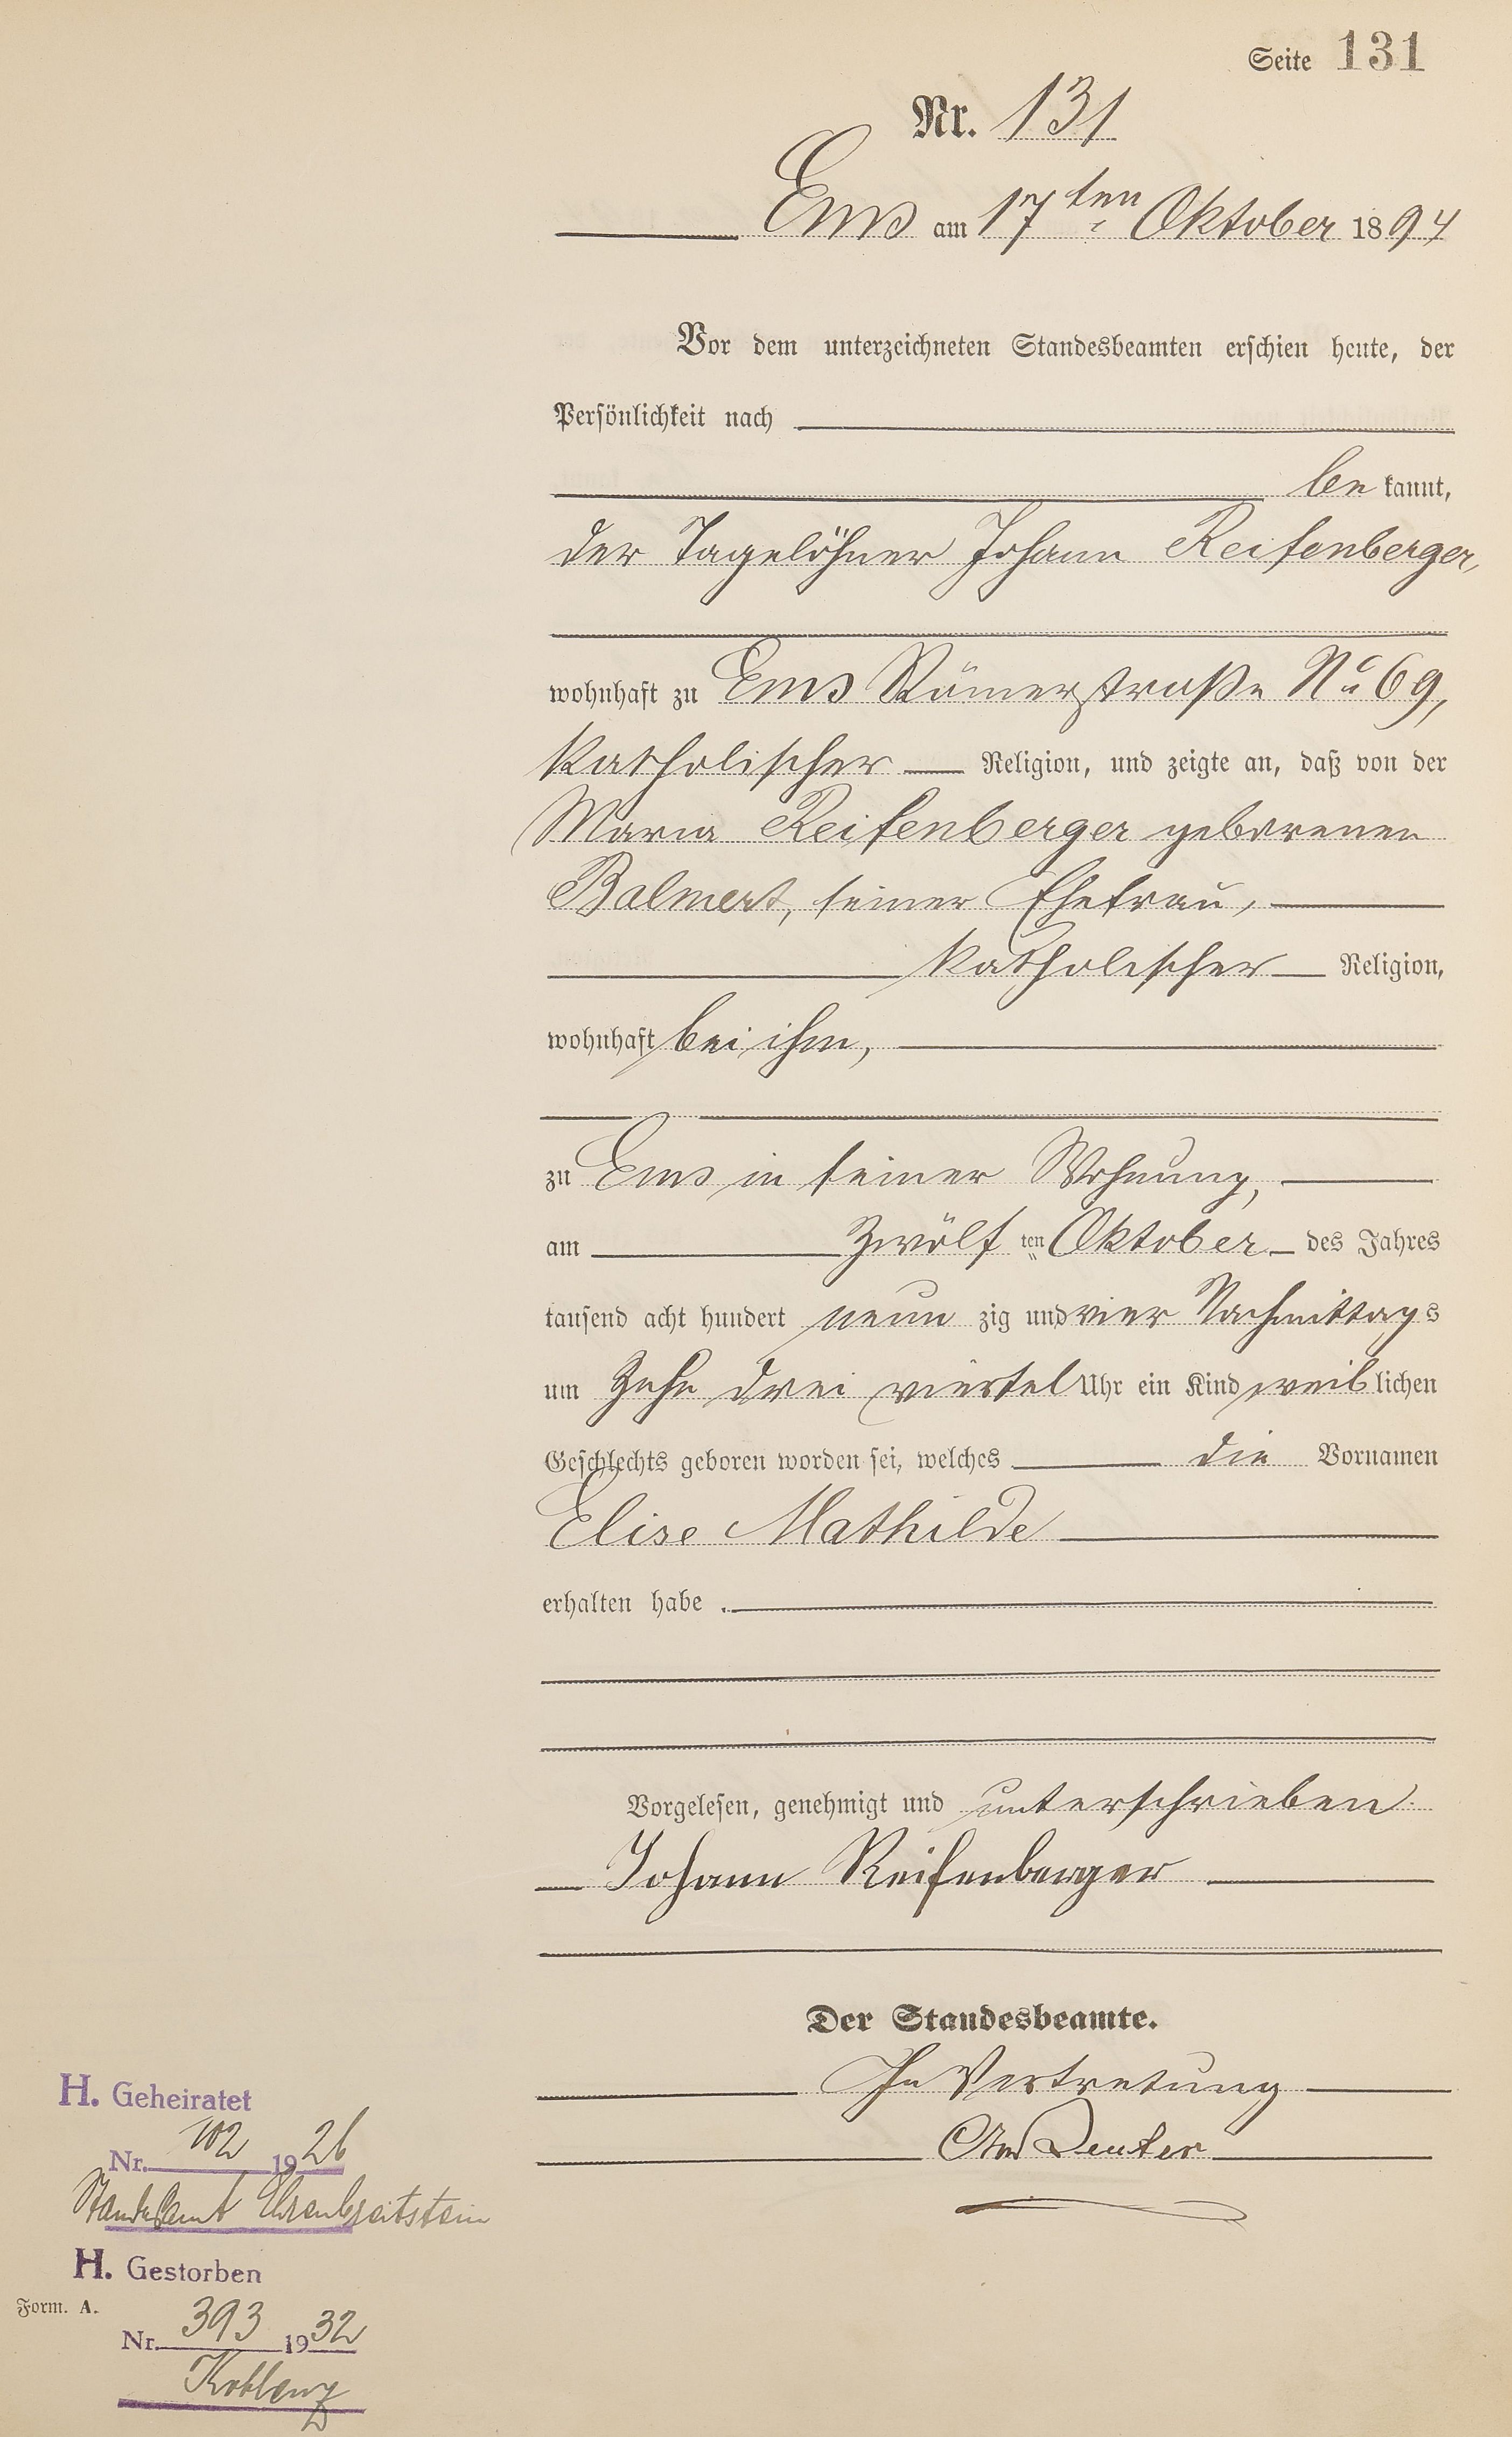 Seite 131
Nr. 131
Ems am 17ten Oktober 1894
Vor dem unterzeichneten Standesbeamten erschien heute, der
Persönlichkeit nach
be kannt,
der Tagelöhner Johann Reifenberger,
wohnhaft zu Ems Römerstraße No 69,
katholischer Religion, und zeigte an, daß von der
Maria Reifenberger geborenen
Balmert, seiner Ehefrau,
katholischer Religion,
wohnhaft bei ihm,
zu Ems in seiner Wohnung,
am zwölf ten Oktober des Jahres
tausend acht hundert neun zig und vier Nachmittags
um zehn drei viertel Uhr ein Kind weib lichen
Geschlechts geboren worden sei, welches die Vornamen
Elise Mathilde
erhalten habe.
Vorgelesen, genehmigt und unterschrieben
Johann Reifenberger
Der Standesbeamte.
In Vertretung
Reuter
H. Geheiratet
Nr. 102 1926
Standesamt Ehrenbreitstein
H. Gestorben
Form. A.
Nr. 393 1932
Koblenz